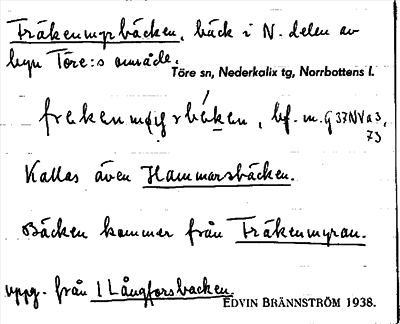 Fräkenmyrbäcken, bäck i N. delen av
byn Töre:s område.
Töre sn, Nederkalix tg, Norrbottens l.
bf. m. G 37NVa3,
73
Kallas även Hammarsbäcken.
Bäcken kommer från Fräkenmyran.
uppg. från 1 Långforsbacken.
EDVIN BRÄNNSTRÖM 1938.